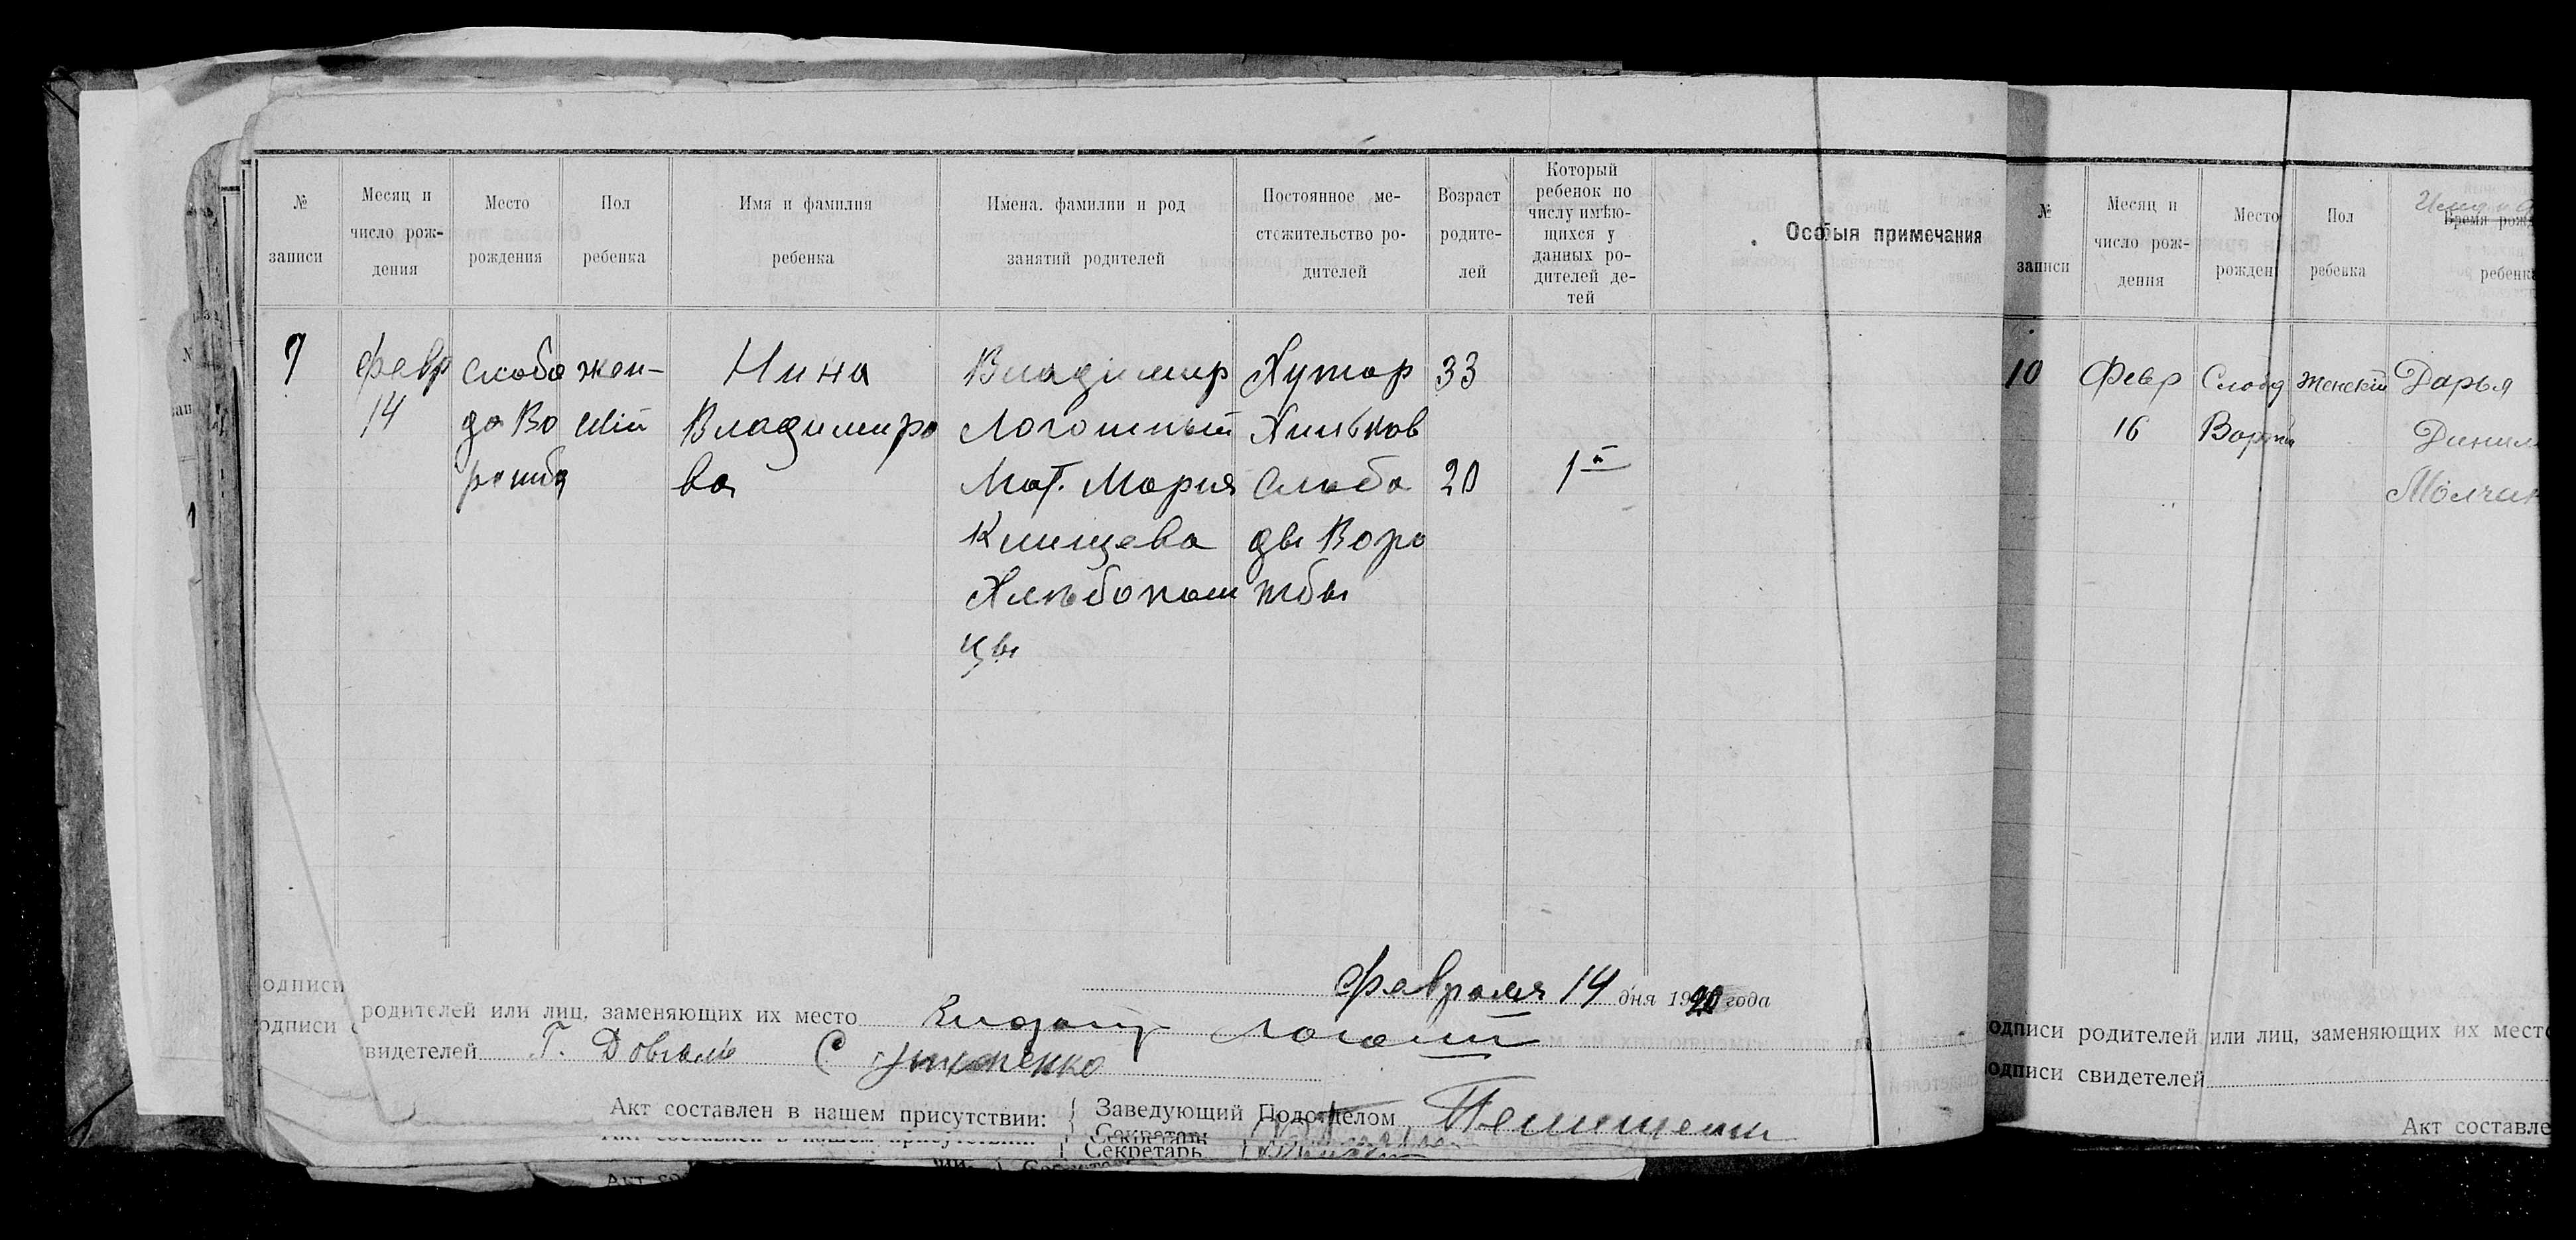 № записи
Месяц и число рождения
Место рождения
Пол ребенка
Имя и фамилия ребенка
Имена. фамилии и род занятий родителей
Постоянное местожительство родителей
Возраст родителей
Который ребенок по числу имѣющихся у данных родителей детей
Особыя примечания
7
февр
14
слобо
да Во
рожба
жен-
скій
Нина
Владимиро
ва
Владимир
Логотный
Мат. Мария
Клищева
Хлѣбопаш
цы
Хутор
Хильков
Слобо
ды Воро
жбы
33
20
1й
февраля 14 дня 1920 года
одписи
родителей или лиц, заменяющих их место
одписи
видетелей Г. Довгаль С
Акт составлен в нашем присутствии:
Заведующий Подотделом
Секретарь
Секретарь
№ записи
Месяц и число рождения
Место рожден
Пол ребенка
Время рож
ребенк
10
Февр
16
Слобд
Женскій
Дарья
Молчан
одписи родителей или лиц, заменяющих их место
одписи свидетелей
Акт составле